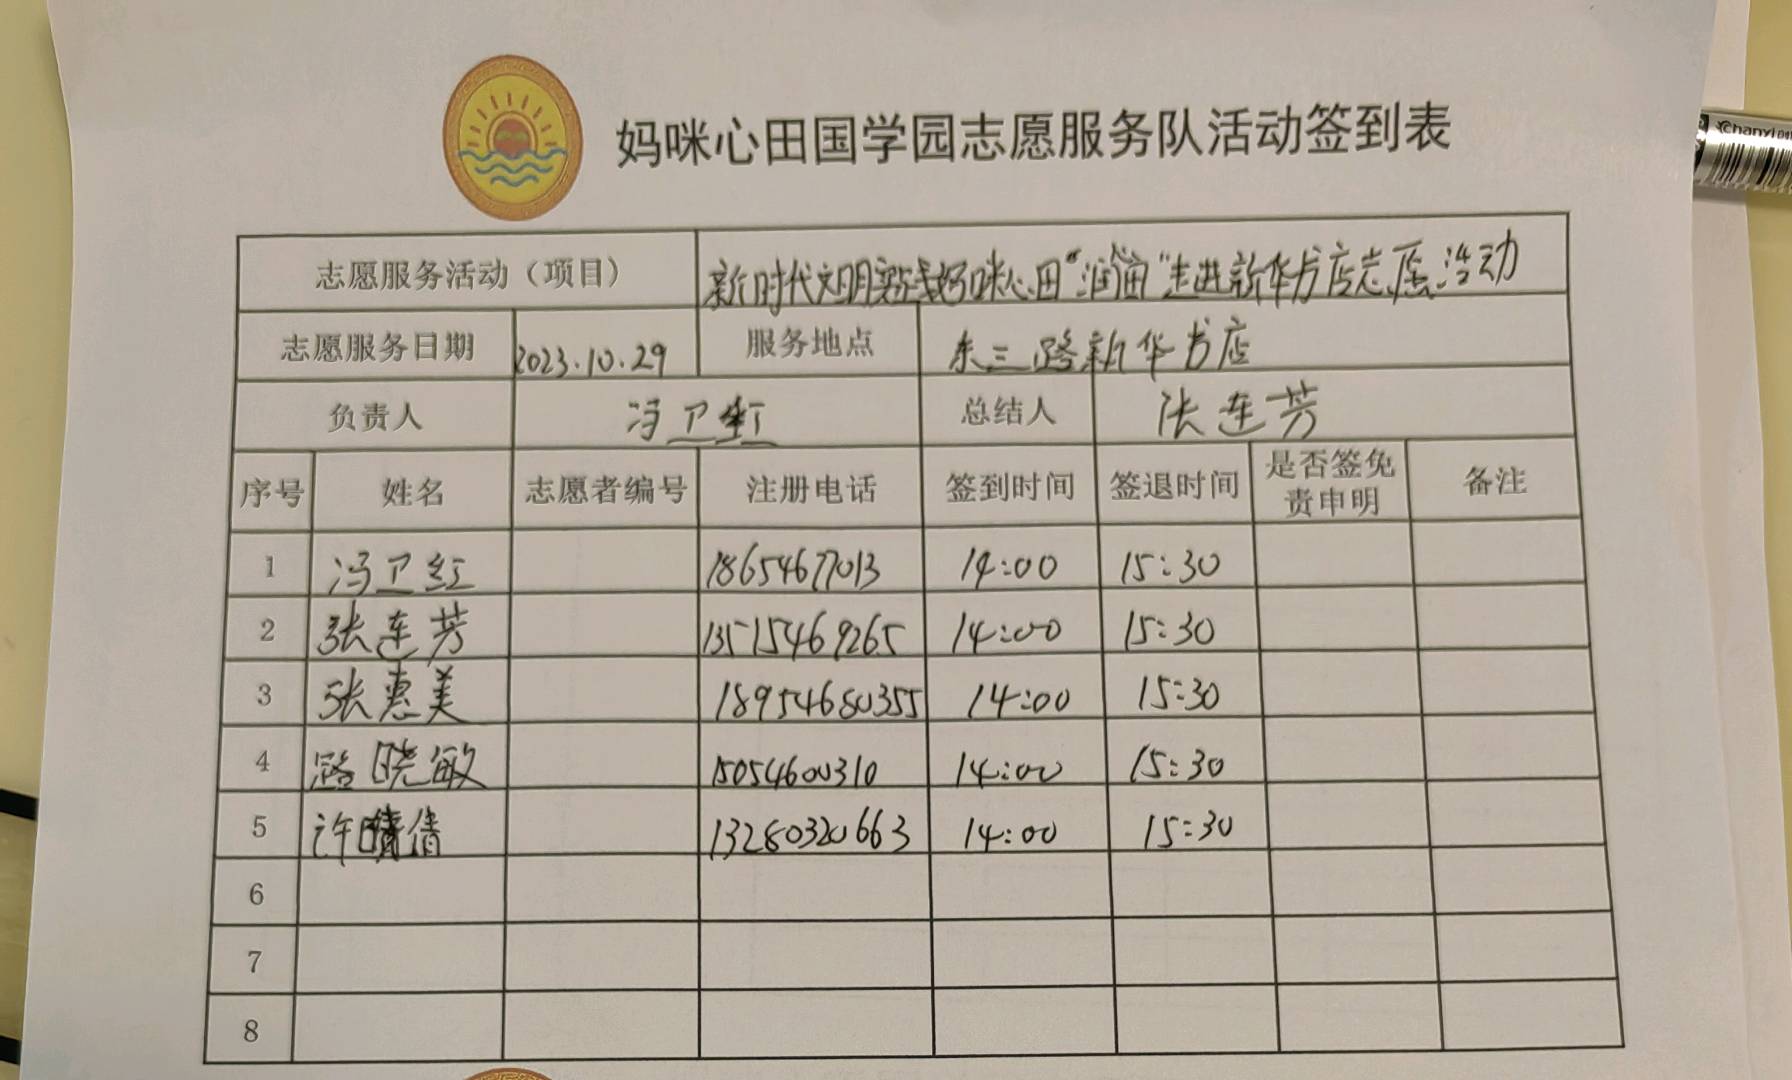 妈咪心田国学园志愿服务队活动签到表
志愿服务活动（项目） 新时代文明实践妈咪心田“润苗”走进新华书店志愿活动
志愿服务日期 2023.10.29 服务地点 东三路新华书店
负责人 冯卫红 总结人 张连芳
序号 姓名 志愿者编号 注册电话 签到时间 签退时间 是否签免责申明 备注
1 冯卫红 18654677013 14:00 15:30
2 张连芳 13515469265 14:00 15:30
3 张惠美 18954680355 14:00 15:30
4 路晓敏 15054600310 14:00 15:30
5 许晴倩 13280320663 14:00 15:30
6
7
8